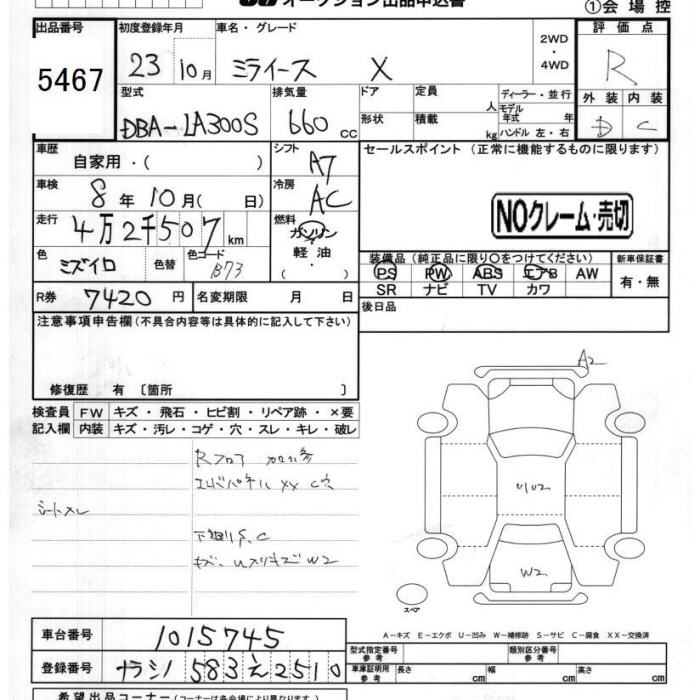 オークション出品申込書
①会場控
出品番号
初度登録年月
車名・グレード
2WD
・
4WD
評価点
5467
23 10月
ミライース X
R
型式
排気量
ドア
定員
人
ディーラー・並行
モデル
年式 年
外装 内装
DBA-LA300S
660 cc
形状
積載
kg
ハンドル 左・右
D C
車歴
自家用・( )
シフト
A7
セールスポイント (正常に機能するものに限ります)
車検
8年10月( 日)
冷房
AC
NOクレーム・売切
走行
4万2千507km
燃料
ガソリン
軽油
・
( )
色
ミズイロ
色替
色コード
B73
装備品 (純正品に限り○をつけてください)
新車保証書
PS PW ABS エアB AW
SR ナビ TV カワ
有・無
R券
7420円
名変期限 月 日
後日品
注意事項申告欄(不具合内容等は具体的に記入して下さい)
修復歴 有 〔箇所 〕
検査員 FW キズ・飛石・ヒビ割・リペア跡・×要
記入欄 内装 キズ・汚レ・コゲ・穴・スレ・キレ・破レ
A2
Rフロア
XX
シートスレ
U2
下廻りS、C
W2
W2
スペア
車台番号
1015745
A-キズ E-エクボ U-凹み W-補修跡 S-サビ C-腐食 XX-交換済
登録番号
ナラシノ 583 え 2510
型式指定番号
参考
類別区分番号
参考
車庫証明用
参考
長さ cm
幅 cm
高さ cm
希望出品コーナー(コーナーは各会場により異なります。)